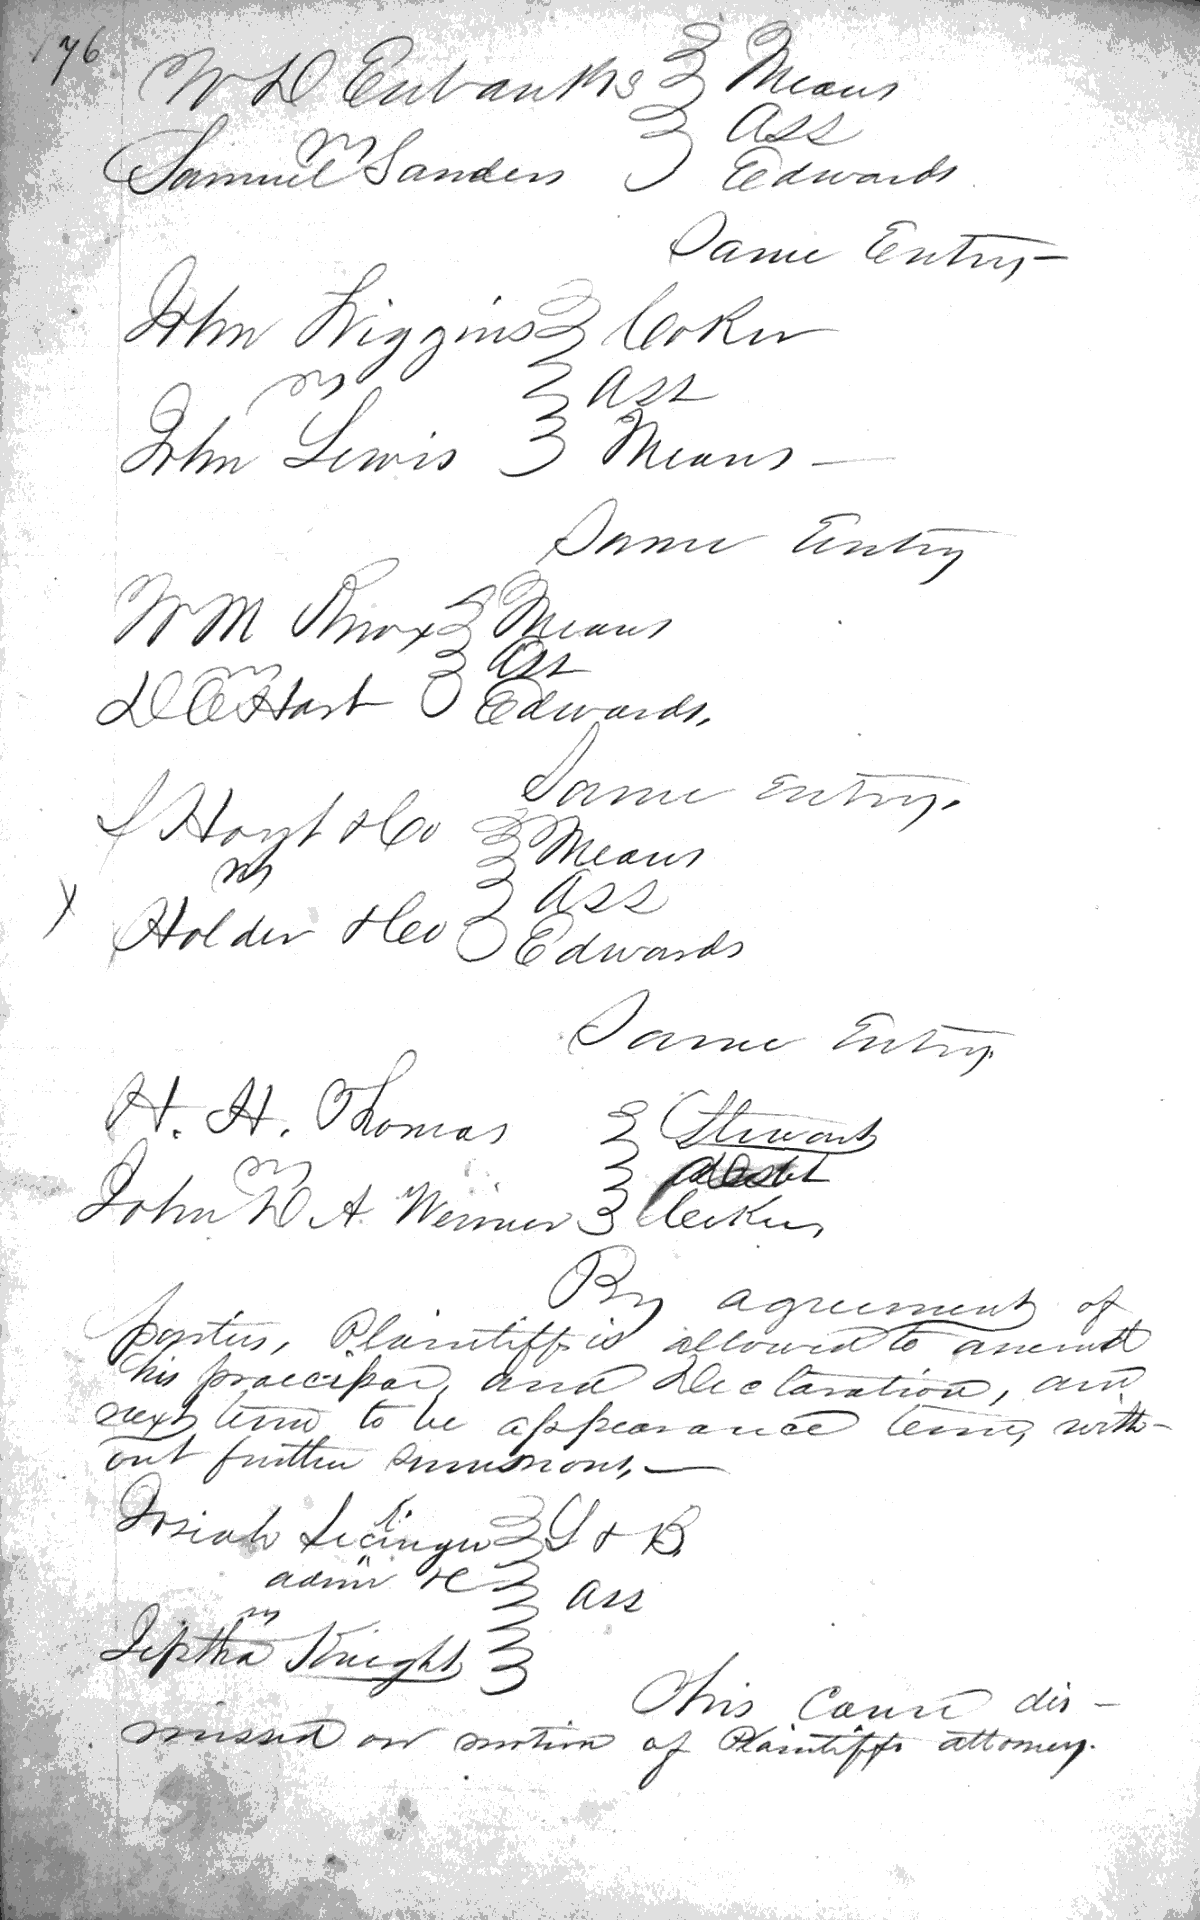 176
W D Eubanks } Means
vs } Ass
Samuel Sanders } Edwards
Same Entry
John Liggins } Coker
vs } Ass
John Lewis } Means
Same Entry
W M Knox } Means
vs } Ass
D C Hart } Edwards.
Same Entry.
J Hoyt & Co } Means
vs } Ass
X Holder & Co } Edwards
Same Entry.
H. H. Thomas } Stewart
vs } Debt
John D A Werner } Coker
By agreement of
parties, Plaintiff is allowed to amend
his praecipae, and Declaration, and
next term to be appearance term, with-
out further summons,
Josiah } G & B.
admr &c } Ass
vs
Jeptha Knight }
This cause dis-
missed on motion of Plaintiffs attorney.